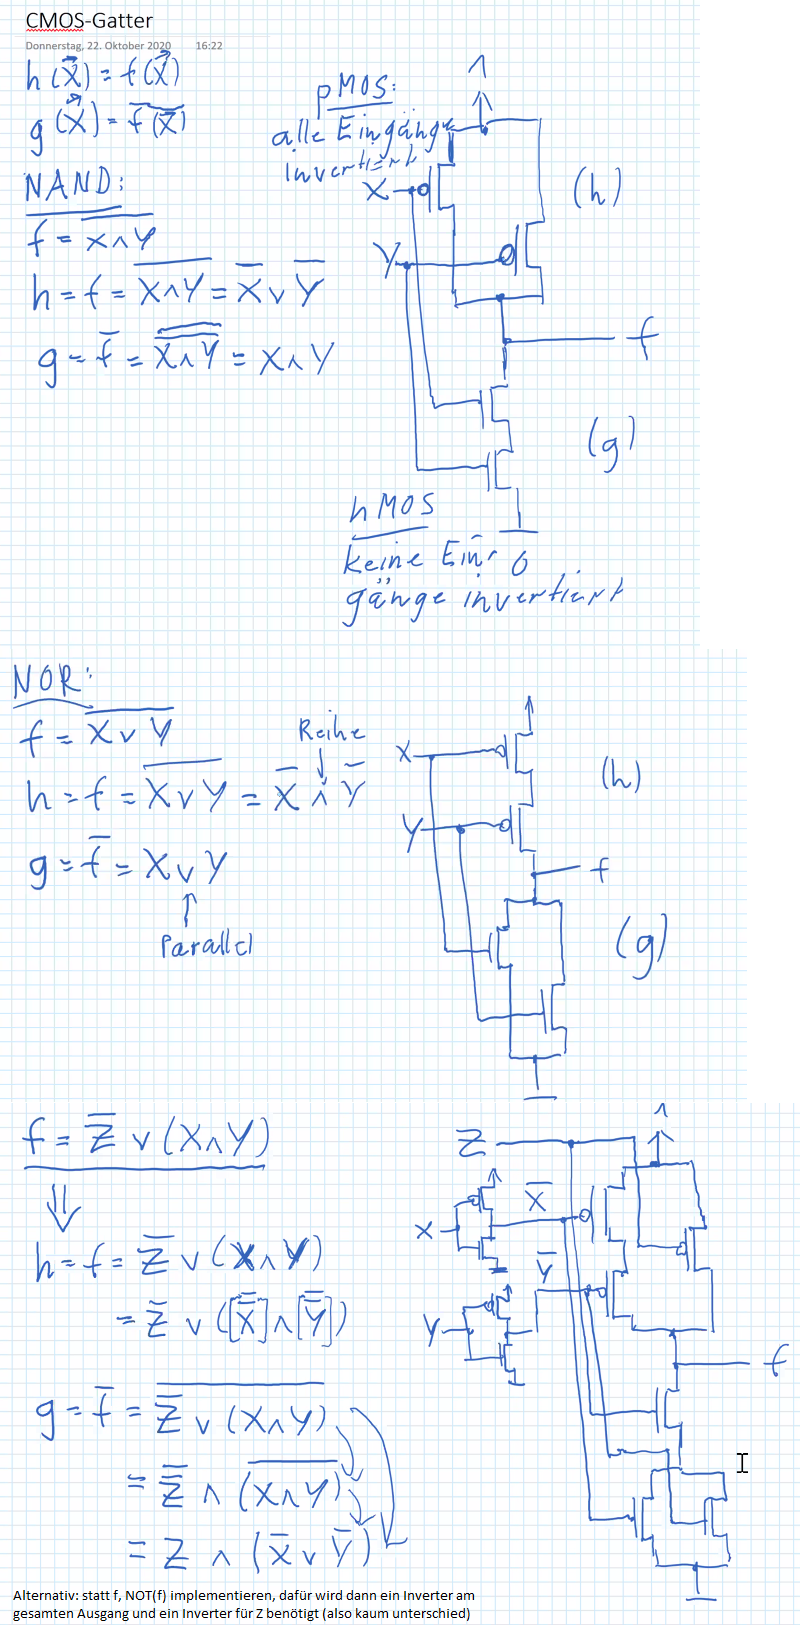 CMOS-Gatter
Donnerstag, 22. Oktober 2020 16:22
h(X⃗) = f(X⃗)
g(X⃗) = f̅(̅X̅⃗)̅
pMOS:
alle Eingänge
invertiert
1
X
(h)
Y
f
(g)
nMOS
keine Ein-
0
gänge invertiert
NAND:
f = X̅∧̅Y̅
h = f = X̅∧̅Y̅ = X̅ ∨ Y̅
g = f̅ = X̿∧̿Y̿ = X∧Y
NOR:
f = X̅∨̅Y̅
Reihe
h = f = X̅∨̅Y̅ = X̅ ∧ Y̅
g = f̅ = X∨Y
Parallel
X
(h)
Y
f
(g)
f = Z̅ ∨ (X∧Y)
h = f = Z̅ ∨ (X∧Y)
= Z̅ ∨ ([X̿]∧[Y̿])
g = f̅ = Z̿ ̅∨̅ ̅(̅X̅∧̅Y̅)̅
= Z̿ ∧ (̅X̅∧̅Y̅)̅
= Z ∧ (X̅∨Y̅)
Z
1
X
X̅
Y
Y̅
f
Alternativ: statt f, NOT(f) implementieren, dafür wird dann ein Inverter am
gesamten Ausgang und ein Inverter für Z benötigt (also kaum unterschied)